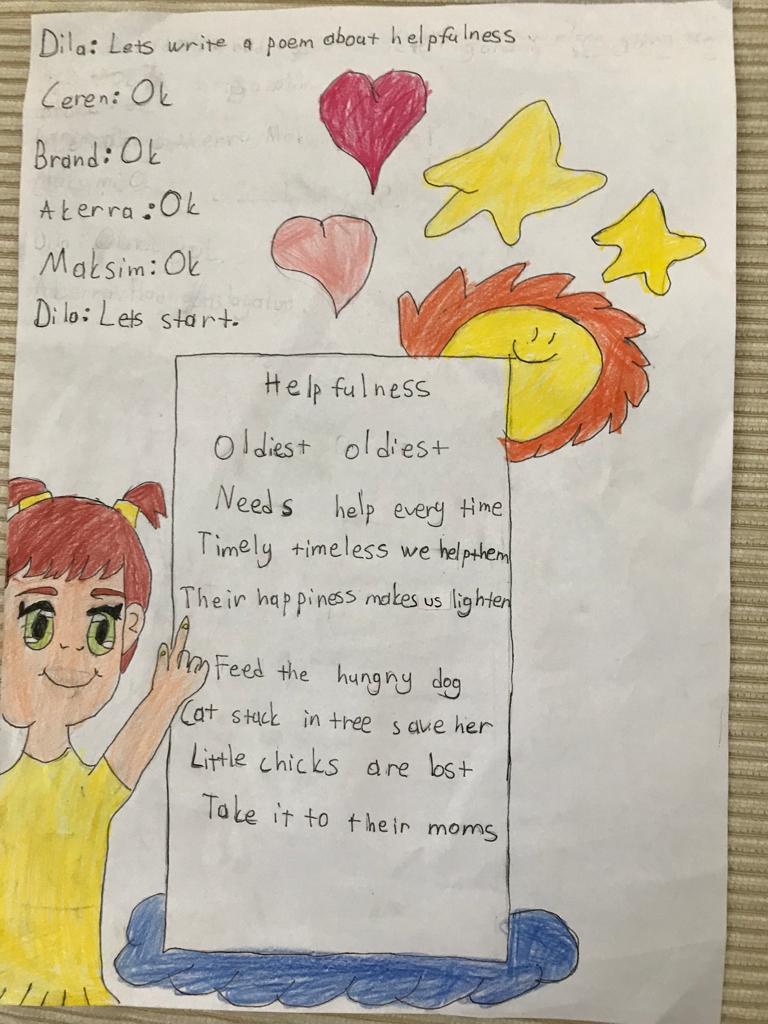 Dila: Lets write a poem about helpfulness
Ceren: Ok
Brand: Ok
Akerra: Ok
Maksim: Ok
Dila: Lets start.
Helpfulness
Oldiest oldiest
Needs help every time
Timely timeless we help them
Their happiness makes us lighten
Feed the hungry dog
Cat stuck in tree save her
Little chicks are lost
Take it to their moms